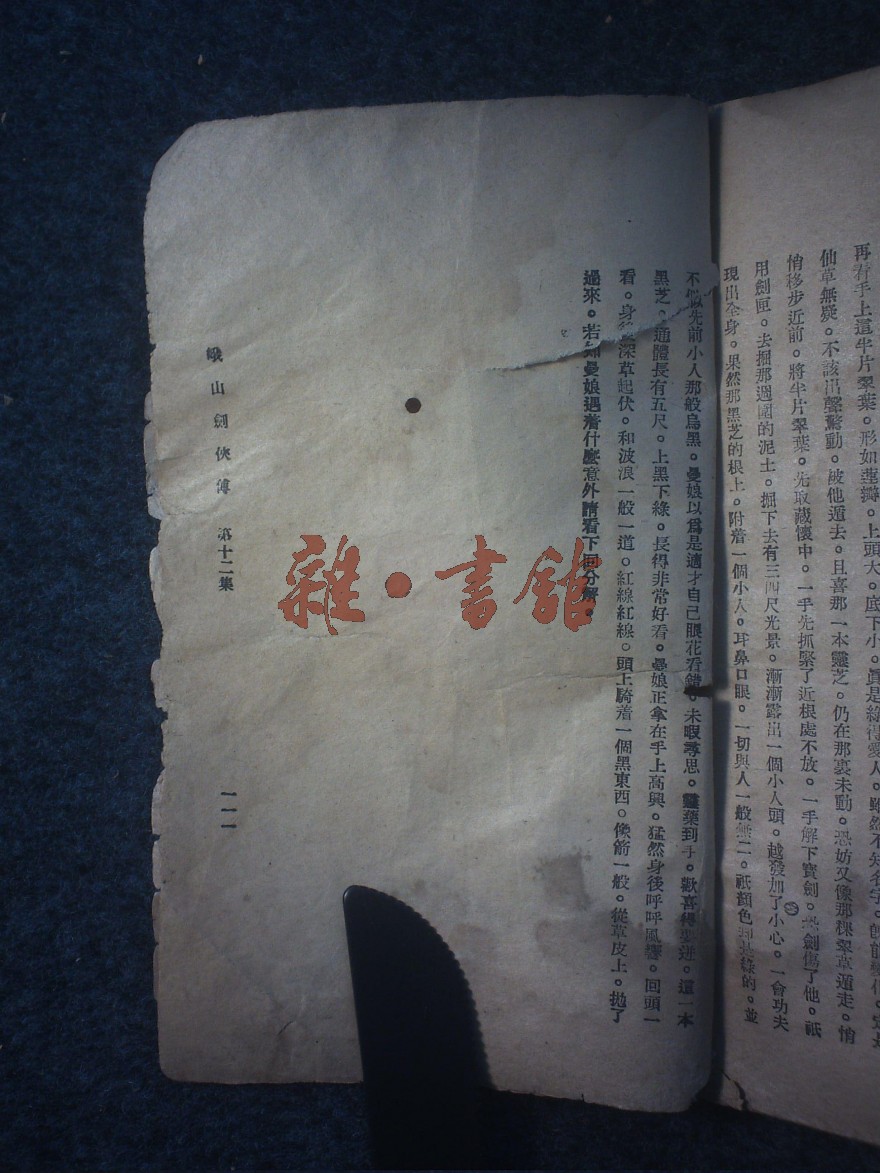 再看手上這半片翠葉。形如蓮瓣。上頭大。底下小。眞是綠得愛人。雖然不知名字。
仙草無疑。不該出聲驚動。被他遁去。且喜那一本靈芝。仍在那裏未動。恐妨又像那棵翠草遁走。悄
悄移步近前。將半片翠葉。先取藏懷中。一手先抓緊了近根處不放。一手解下寶劍。劍傷了他。祇
用劍匣。去掘那週圍的泥土。掘下去有三四尺光景。漸漸露出一個小人頭。越發加了小心。一會功夫
現出全身。果然那黑芝的根上。附着一個小人。耳鼻口眼。一切與人一般無二。祇顏色綠的。並
不似先前小人那般烏黑。曼娘以爲是適才自己眼花看錯。未暇尋思。靈藥到手。歡喜得。這一本
黑芝。通體長有五尺。上黑下綠。長得非常好看。曼娘正拿在手上高興。猛然身後呼呼風響。回頭一
看。身後深草起伏。和波浪一般一道。紅線紅線。頭上騎着一個黑東西。像箭一般。從草皮上。拋了
過來。若知曼娘遇着什麽意外請看下回分解。
峨山劍俠傳 第十二集
一一一
雜·書館